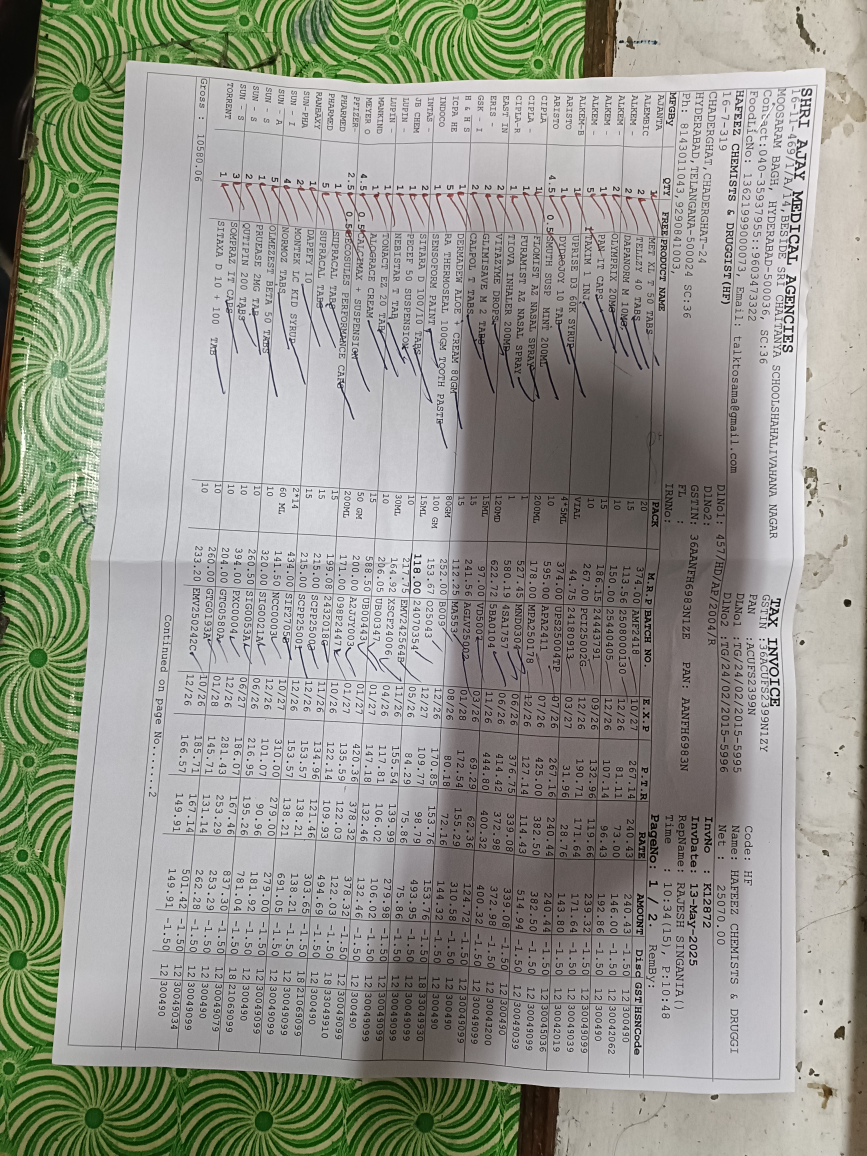 SHRI AJAY MEDICAL AGENCIES
16-11-469/1/A/14, BESIDE SRI CHAITANYA SCHOOLSHAHALIVAHANA NAGAR
MOOSARAM BAGH, HYDERABAD-500036, SC:36
Contact:040-35937955::9603473322
FoodLicNo: 13621999000073, Email: talktosama@gmail.com
TAX INVOICE
GSTIN :36ACUFS2399N1ZY
PAN :ACUFS2399N
DlNo1 :TG/24/02/2015-5995
DlNo2 :TG/24/02/2015-5996
Code: HF
Name: HAFEEZ CHEMISTS & DRUGGI
Net : 25070.00
HAFEEZ CHEMISTS & DRUGGIST(HF)
16-7-319
CHADERGHAT, CHADERGHAT-24
HYDERABAD, TELANGANA-500024 SC:36
Ph: 8143011043,9290841003,
DlNo1: 457/HD/AP/2004/R
DlNo2:
GSTIN: 36AANFH6983N1ZE PAN: AANFH6983N
FL :
IRNNo:
InvNo : K12872
InvDate: 13-May-2025
RepName: RAJESH SINGANIA()
Time : 10:34(15), P:10:48
PageNo: 1 / 2. RemBy:
MFGBy QTY FREE PRODUCT NAME PACK M.R.P BATCH NO. E.X.P P.T.R RATE AMOUNT Discd GST HSNCode
AJANTA MET XL T 50 TABS 20 374.00 AMF2418 10/27 267.14 240.43 240.43 -1.50 12 300490
ALEMBIC 2 TELLEY 40 TABS 15 113.56 2508000130 12/26 81.11 73.00 146.00 -1.50 12 30042062
ALKEM - 2 DAPANORM M 10MG 10 150.00 25440405 12/26 107.14 96.43 192.86 -1.50 12 300490
ALKEM - OLYMPRIX 20MG 15 186.15 24443791 09/26 132.96 119.66 239.32 -1.50 12 30049099
ALKEM - 1 PAN IT CAPS 10 267.00 PCIZ5002G 12/26 190.71 171.64 171.64 -1.50 12 30049039
ALKEM-B 5 TAXIM 1 INJ VIAL 44.75 24180913 03/27 31.96 28.76 143.80 -1.50 12 30042019
ARISTO 1 UPRISE D3 60K SYRUP 4*5ML 374.00 UFS25004TP 07/26 267.16 240.44 240.44 -1.50 12 30045036
ARISTO DYDROJOY 10 TAB 10 595.00 AFA2411 07/26 425.00 382.50 382.50 -1.50 12 30049099
CIPLA 4.5 0.5 SMUTH SUSP MINT 200ML 200ML 178.00 12/26 127.14 114.43 514.94 -1.50 12 30049039
CIPLA - 1 FLOMIST AZ NASAL SPRAY 1 527.45 06/26 376.75 339.08 339.08 -1.50 12 300490
CIPLA-R 1 FURAMIST AZ NASAL SPRAY 1 580.19 06/26 414.42 372.98 372.98 -1.50 12 30043200
EAST IN 1 TIOVA INHALER 200MD 120MD 622.72 11/26 444.80 400.32 400.32 -1.50 12 30049099
ERIS - 2 VITAZYME DROPS 15ML 97.00 VD5007 69.29 62.36 124.72 -1.50 12 30049099
GSK - I 2 GLIMISAVE M 2 TABS 15 241.56 AGLV25002 01/28 172.54 155.29 310.58 -1.50 12 300490
H & H S 2 CALPOL T TABS 15 112.25 MA553 08/26 80.18 72.16 144.32 -1.50 12 300490
ICPA HE 1 DERMADEW ALOE + CREAM 80GM 80GM 252.00 B009 12/26 170.85 153.76 153.76 -1.50 18 33049930
INDOCO 5 RA THERMOSEAL 100GM TOOTH PASTE 100 GM 153.67 O25043 12/27 109.77 98.79 493.95 -1.50 12 30049099
INTAS - 1 SENSOFORM PAINT 15ML 118.00 24070354 05/26 84.29 75.86 75.86 -1.50 12 30049099
JB CHEM 2 SITARA D 100/10 TABS 10 217.75 EMV242564B 11/26 155.54 139.99 279.98 -1.50 12 30049099
LUPIN - 1 PECEF 50 SUSPENSION 30ML 164.92 KSCP24006 04/26 117.81 106.02 106.02 -1.50 12 300490
LUPIN 1 NEBISTAR T TAB 10 206.05 UB00347 01/27 147.18 132.46 132.46 -1.50 12 300490
MANKIND 1 TONACT EZ 20 TAB 15 588.50 UB00443 01/27 420.36 378.32 378.32 -1.50 12 30049099
MEYER O 1 ALOGRACE CREAM 50 GM 200.00 A2JJY003 01/27 135.59 122.03 122.03 -1.50 18 33049910
PFIZER- 4.5 0.5 CALCIMAX - SUSPENSION 200ML 171.00 098P24471 10/26 122.14 109.93 494.69 -1.50 12 300490
PHARMED 2.5 BECOSULES PERFORMANCE CAPS 15 199.08 2432018G 11/26 134.96 121.46 303.65 -1.50 18 21069099
PHARMED 1 SUPRACAL TABS 15 215.00 SCPP25002 12/26 153.57 138.21 138.21 -1.50 12 30049099
RANBAXY 5 SUPRACAL TABS 15 215.00 SCPP25001 12/26 153.57 138.21 691.05 -1.50 12 30049099
SUN-PHA 1 DAPEFY 10 2*14 434.00 SIP2705B 10/27 310.00 279.00 279.00 -1.50 12 30049099
SUN - I 2 MONTEK LC KID SYRUP 60 ML 141.50 NCC0003 12/26 101.07 90.96 181.92 -1.50 12 300490
SUN - A 4 NORMOZ TABS 10 320.00 SLG0021A 06/26
SUN - S 5 OLMEZEST BETA 50 TABS 10 260.50 SIG0053A 06/27 216.95 195.26 781.04 -1.50 12 30049099
SUN - S 1 PRUEASE 2MG TAB 10 394.00 PXC0004 12/26 186.07 167.46 837.30 -1.50 18 21069099
SUN - S 2 QUTIPIN 200 TABS 10 204.00 GTG0580A 01/28 281.43 253.29 253.29 -1.50 12 30049079
TORRENT 3 SOMPRAZ IT CAPS 10 260.00 GTG0193A 10/26 145.71 131.14 262.28 -1.50 12 300490
1 SITAXA D 10 + 100 TAB 10 233.20 EMV250242C 12/26 185.71 167.14 501.42 -1.50 12 30049099
166.57 149.91 149.91 -1.50 12 30049034
Gross : 10580.06
Continued on page No.......2